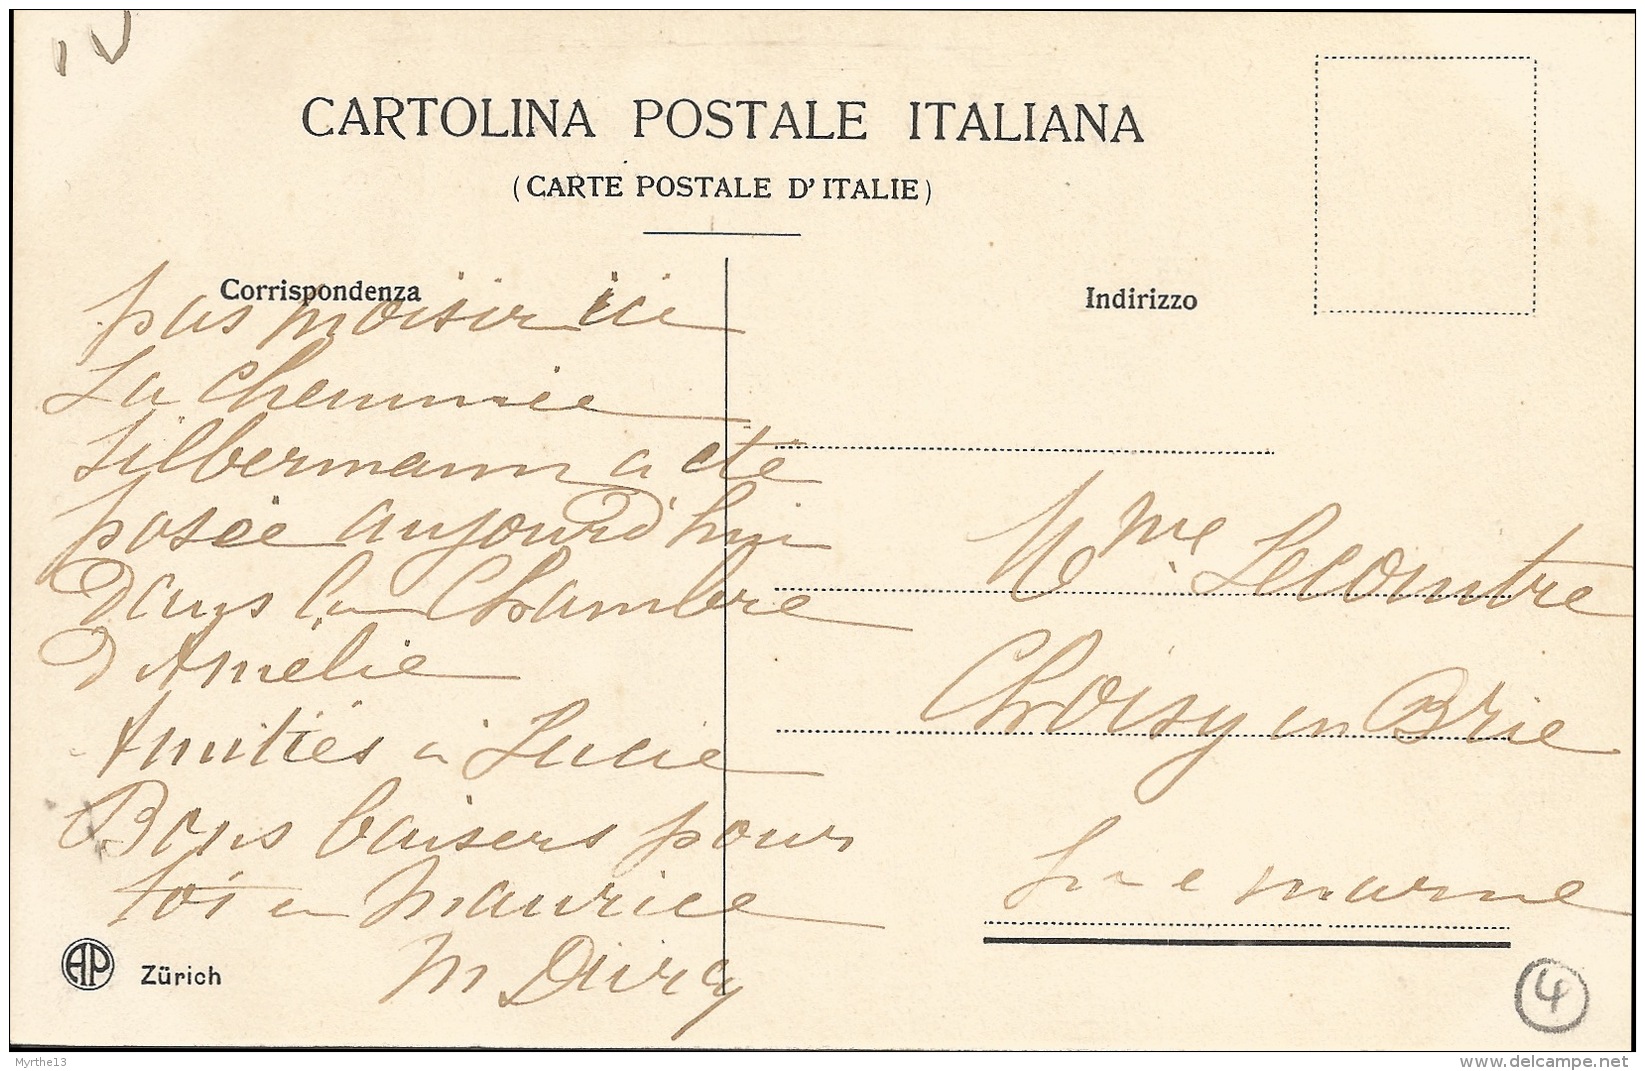 IV
CARTOLINA POSTALE ITALIANA
(CARTE POSTALE D'ITALIE)
Corrispondenza
Indirizzo
pas moisir ici
La cheminée
Silbermann a été
posée aujourd'hui
Dans la Chambre
D Amélie
Amitiés à Lucie
Bons baisers pour
toi Maurice
M
Mme Lecomtre
Choisy en Brie
marne
AP Zürich
4
Myrthe13
www.delcampe.net